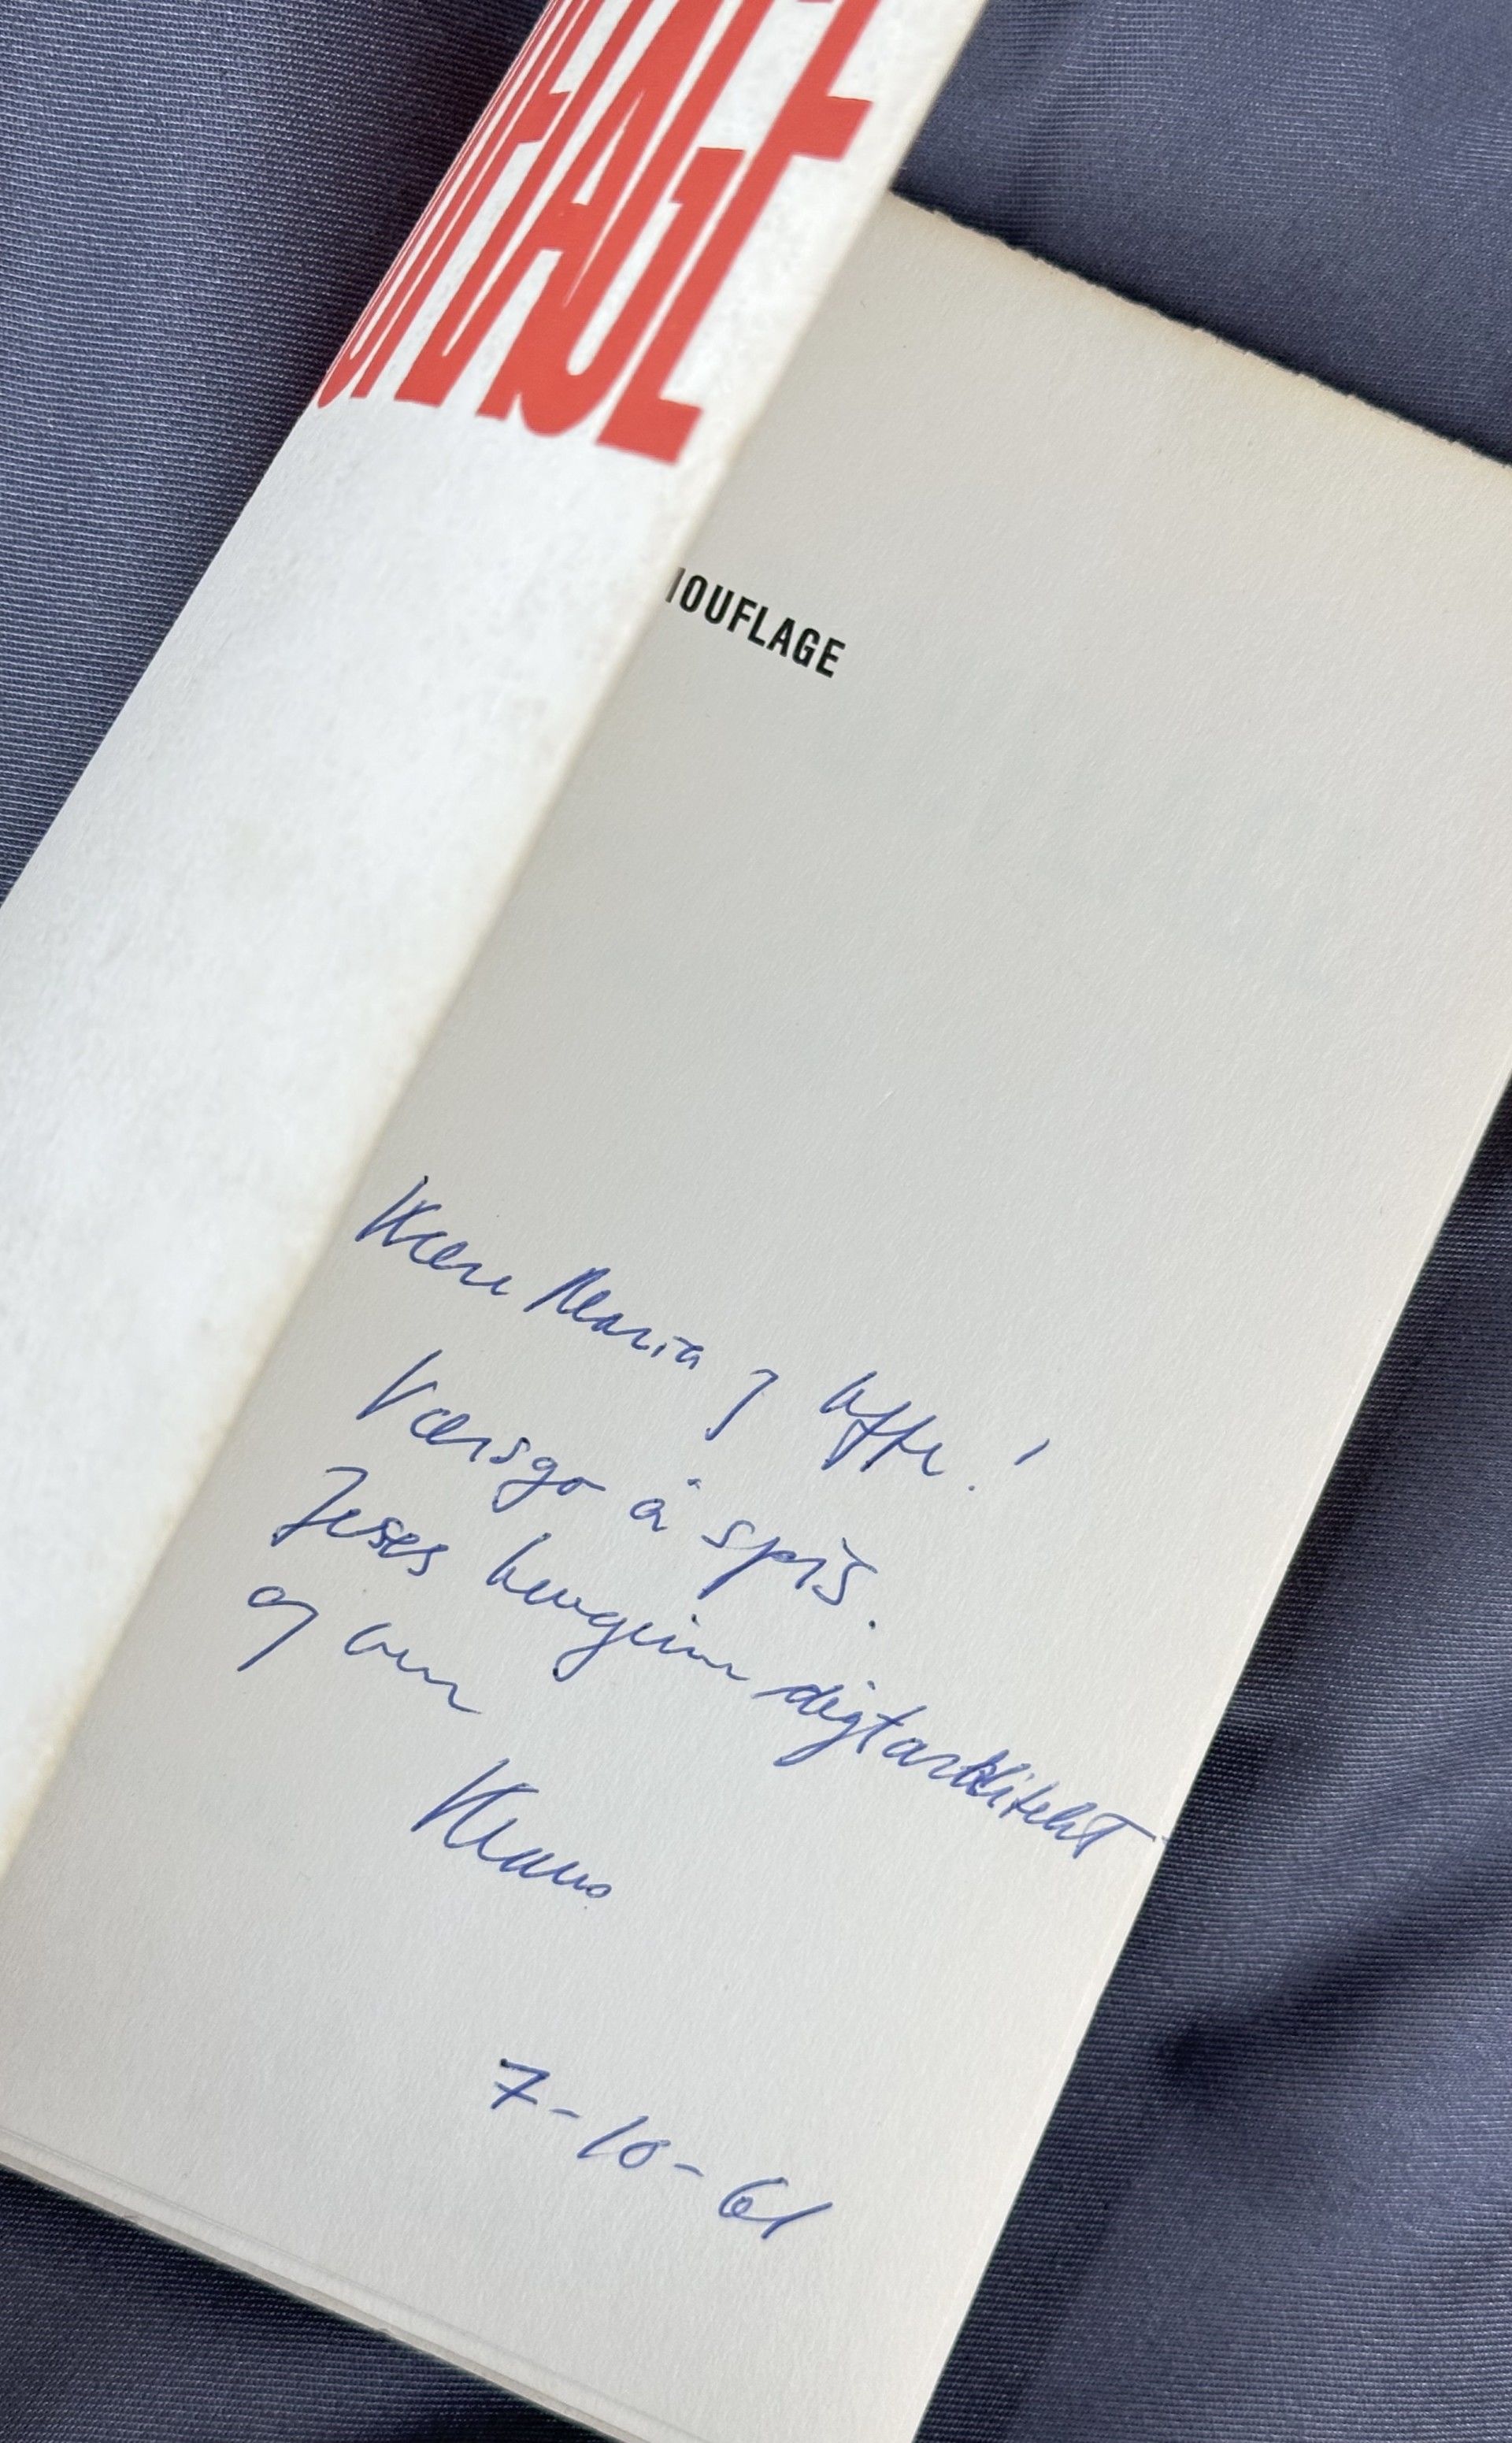 OUFLAGE
MOUFLAGE
Kære Maria og Uffe!
Værsgo å spis.
Jeres hengivne digtarkitekt
og ven
Klaus
7-10-61